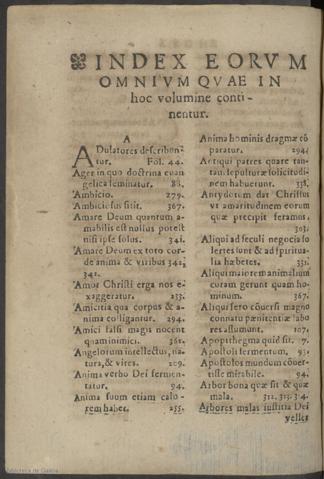 INDEX EORVM
OMNIVM QVAE IN
hoc volumine conti-
nentur.
A
ADulatores describun-
tur. Fol. 44.
Ager in quo doctrina euan
gelica seminatur. 88.
Ambicio. 279.
Ambiciosus sitit. 367.
Amare Deum quantum a-
mabilis est nullus potest
nisi ipse solus. 341.
Amare Deum ex toto cor-
de anima & viribus 342,
342.
Amor Christi erga nos e-
xaggeratur. 233.
Amicitia qua corpus & a-
nima colligantur. 294.
Amici falsi magis nocent
quam inimici. 361.
Angelorum intellectus, na
tura, & vires. 209.
Anima verbo Dei sermen-
tatur. 94.
Anima suum etiam calo-
rem habet. 255.
Anima hominis dragmæ cō
paratur. 294.
Antiqui patres quare tan-
tam sepulturæ solicitudi-
nem habuerunt. 338.
Antydotum dat Christus
vt amaritudinem eorum
quæ precipit feramus.
303.
Aliqui ad seculi negocia so
lertes sunt & ad spiritua-
lia hæbetes. 331.
Aliqui maiorem animalium
curam gerunt quam ho-
minum. 367.
Aliqui sero cōuersi magno
connatu pænitentiæ labo
res assumunt. 107.
Apopthegma quid sit. 7.
Apostoli fermentum. 93.
Apostolos mundum cōuer-
tisse mirabile. 94.
Arbor bona quæ sit & quæ
mala. 312. 313. 314.
Arbores malas iustitia Dei
velles
Biblioteca de Galicia